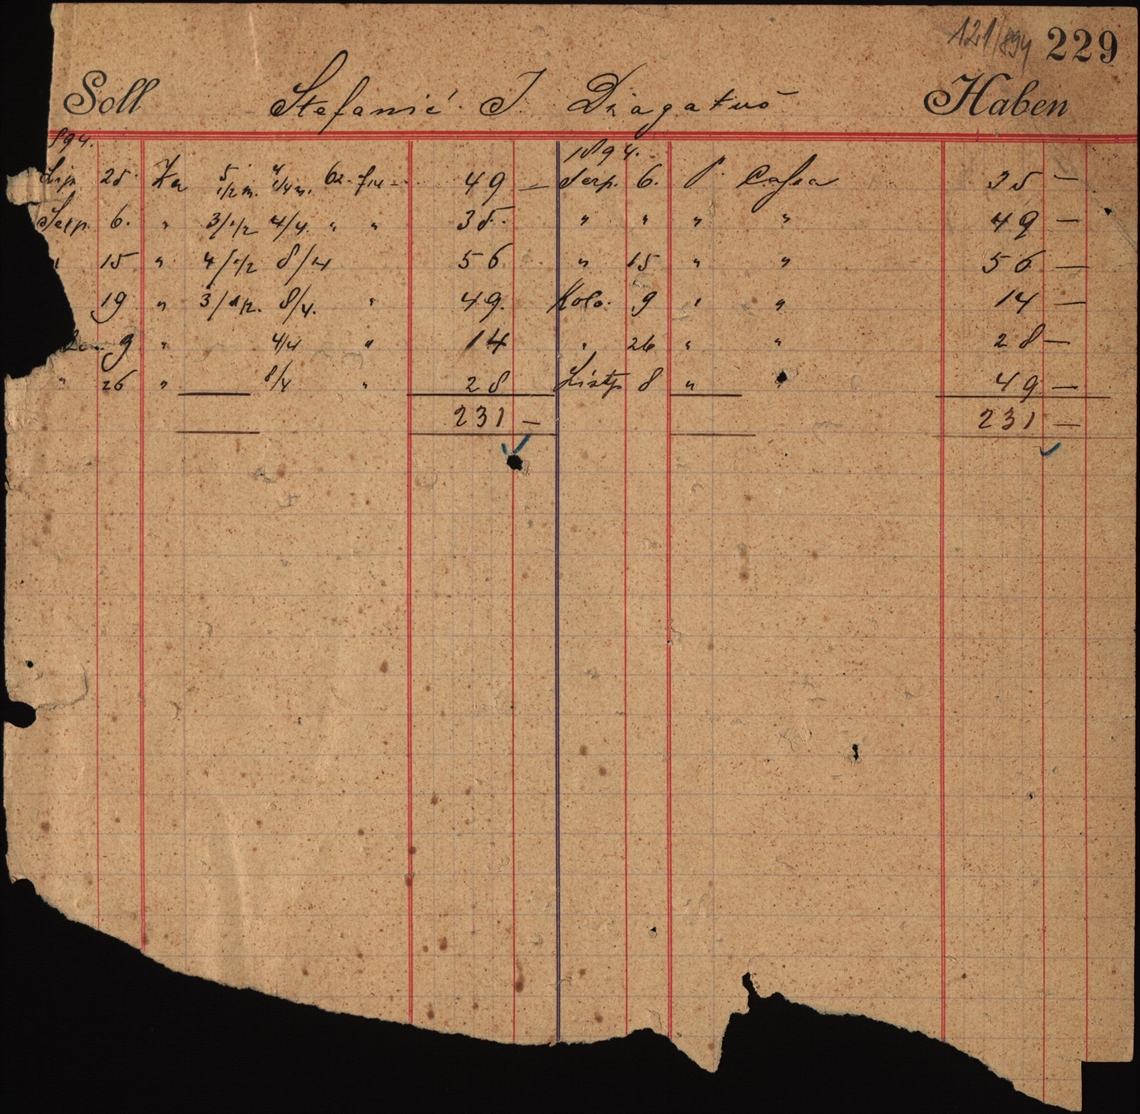 121/894 229
Soll Stefanić J. Dragatuš Haben
894. 1894.
Lip. 25 Za 5/1/2 m. 4/1/4 m. 62. 49 — Serp. 6. P. Cassa 35 —
Serp. 6. " 3/1/2 4/4. " " 35. " " " " 49 —
15 " 4/1/2 8/4 56 " 15 " " 56 —
19 " 3/1/2. 8/4. " 49. Kolo. 9 " " 14 —
9 " 4/4 " 14 " 26 " " 28 —
" 26 " 8/4 " 28 Listp 8 " " 49 —
231 — 231 —